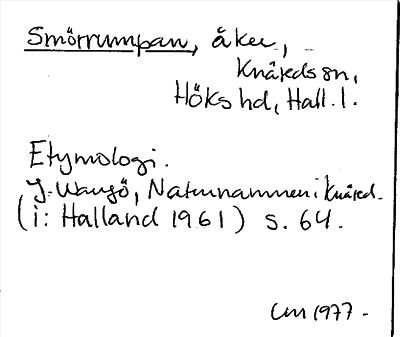 Smörrumpan, åker,
Knäreds sn,
Höks hd, Hall. l.
Etymologi.
J. Wangö, Naturnamnen i Knäred.
(i: Halland 1961) s. 64.
CM 1977